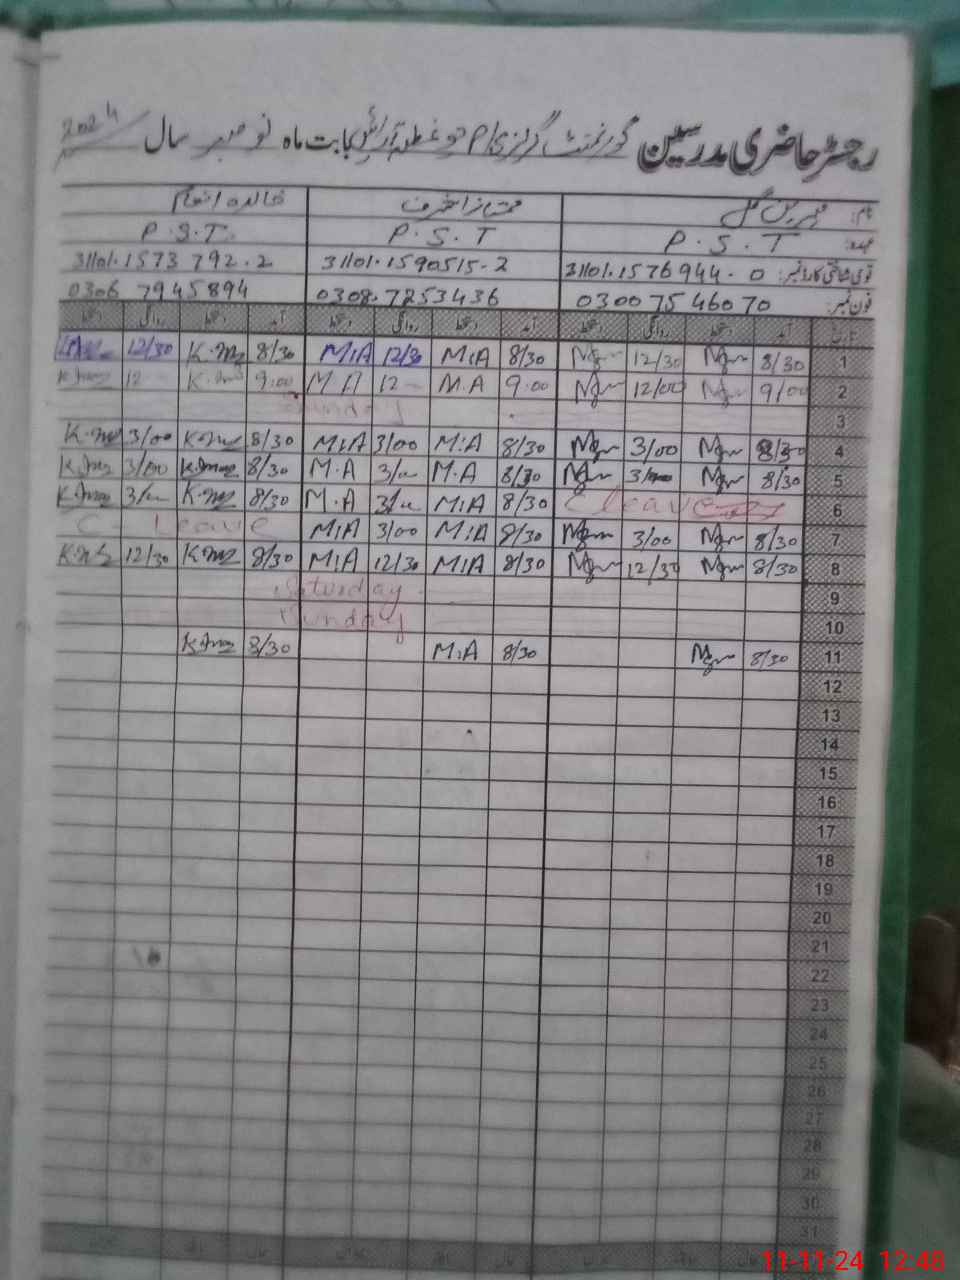 رجسٹر حاضری مدرسین گورنمنٹ گرلز بابت ماہ نومبر سال 2024
نام: مہرین گل ممتاز اشرف خالدہ انعام
عہدہ: P.S.T P.S.T P.S.T
قومی شناختی کارڈ نمبر: 31101.1576944.0 31101.1590515-2 31101.1573792.2
فون نمبر: 03007546070 0308.7253436 0306 7945894
آمد دستخط روانگی دستخط آمد دستخط روانگی دستخط آمد دستخط روانگی دستخط
1 8/30 12/30 8/30 M.A 12/30 M.A 8/30 12/30
2 9/00 12/00 9:00 M.A 12 M.A 9:00 12
3 Sunday
4 8/30 3/00 8/30 M.A 3/00 M.A 8/30 3/00
5 8/30 8/30 M.A M.A 8/30 3/00
6 C leave 8/30 M.A M.A 8/30
7 8/30 3/00 8/30 M.A 3/00 M.A C- Leave
8 8/30 12/30 8/30 M.A 12/30 M.A 8/30 12/30
9 Saturday
10 Sunday
11 8/30 8/30 M.A 8/30
12
13
14
15
16
17
18
19
20
21
22
23
24
25
26
27
28
29
30
31
11-11-24 12:48